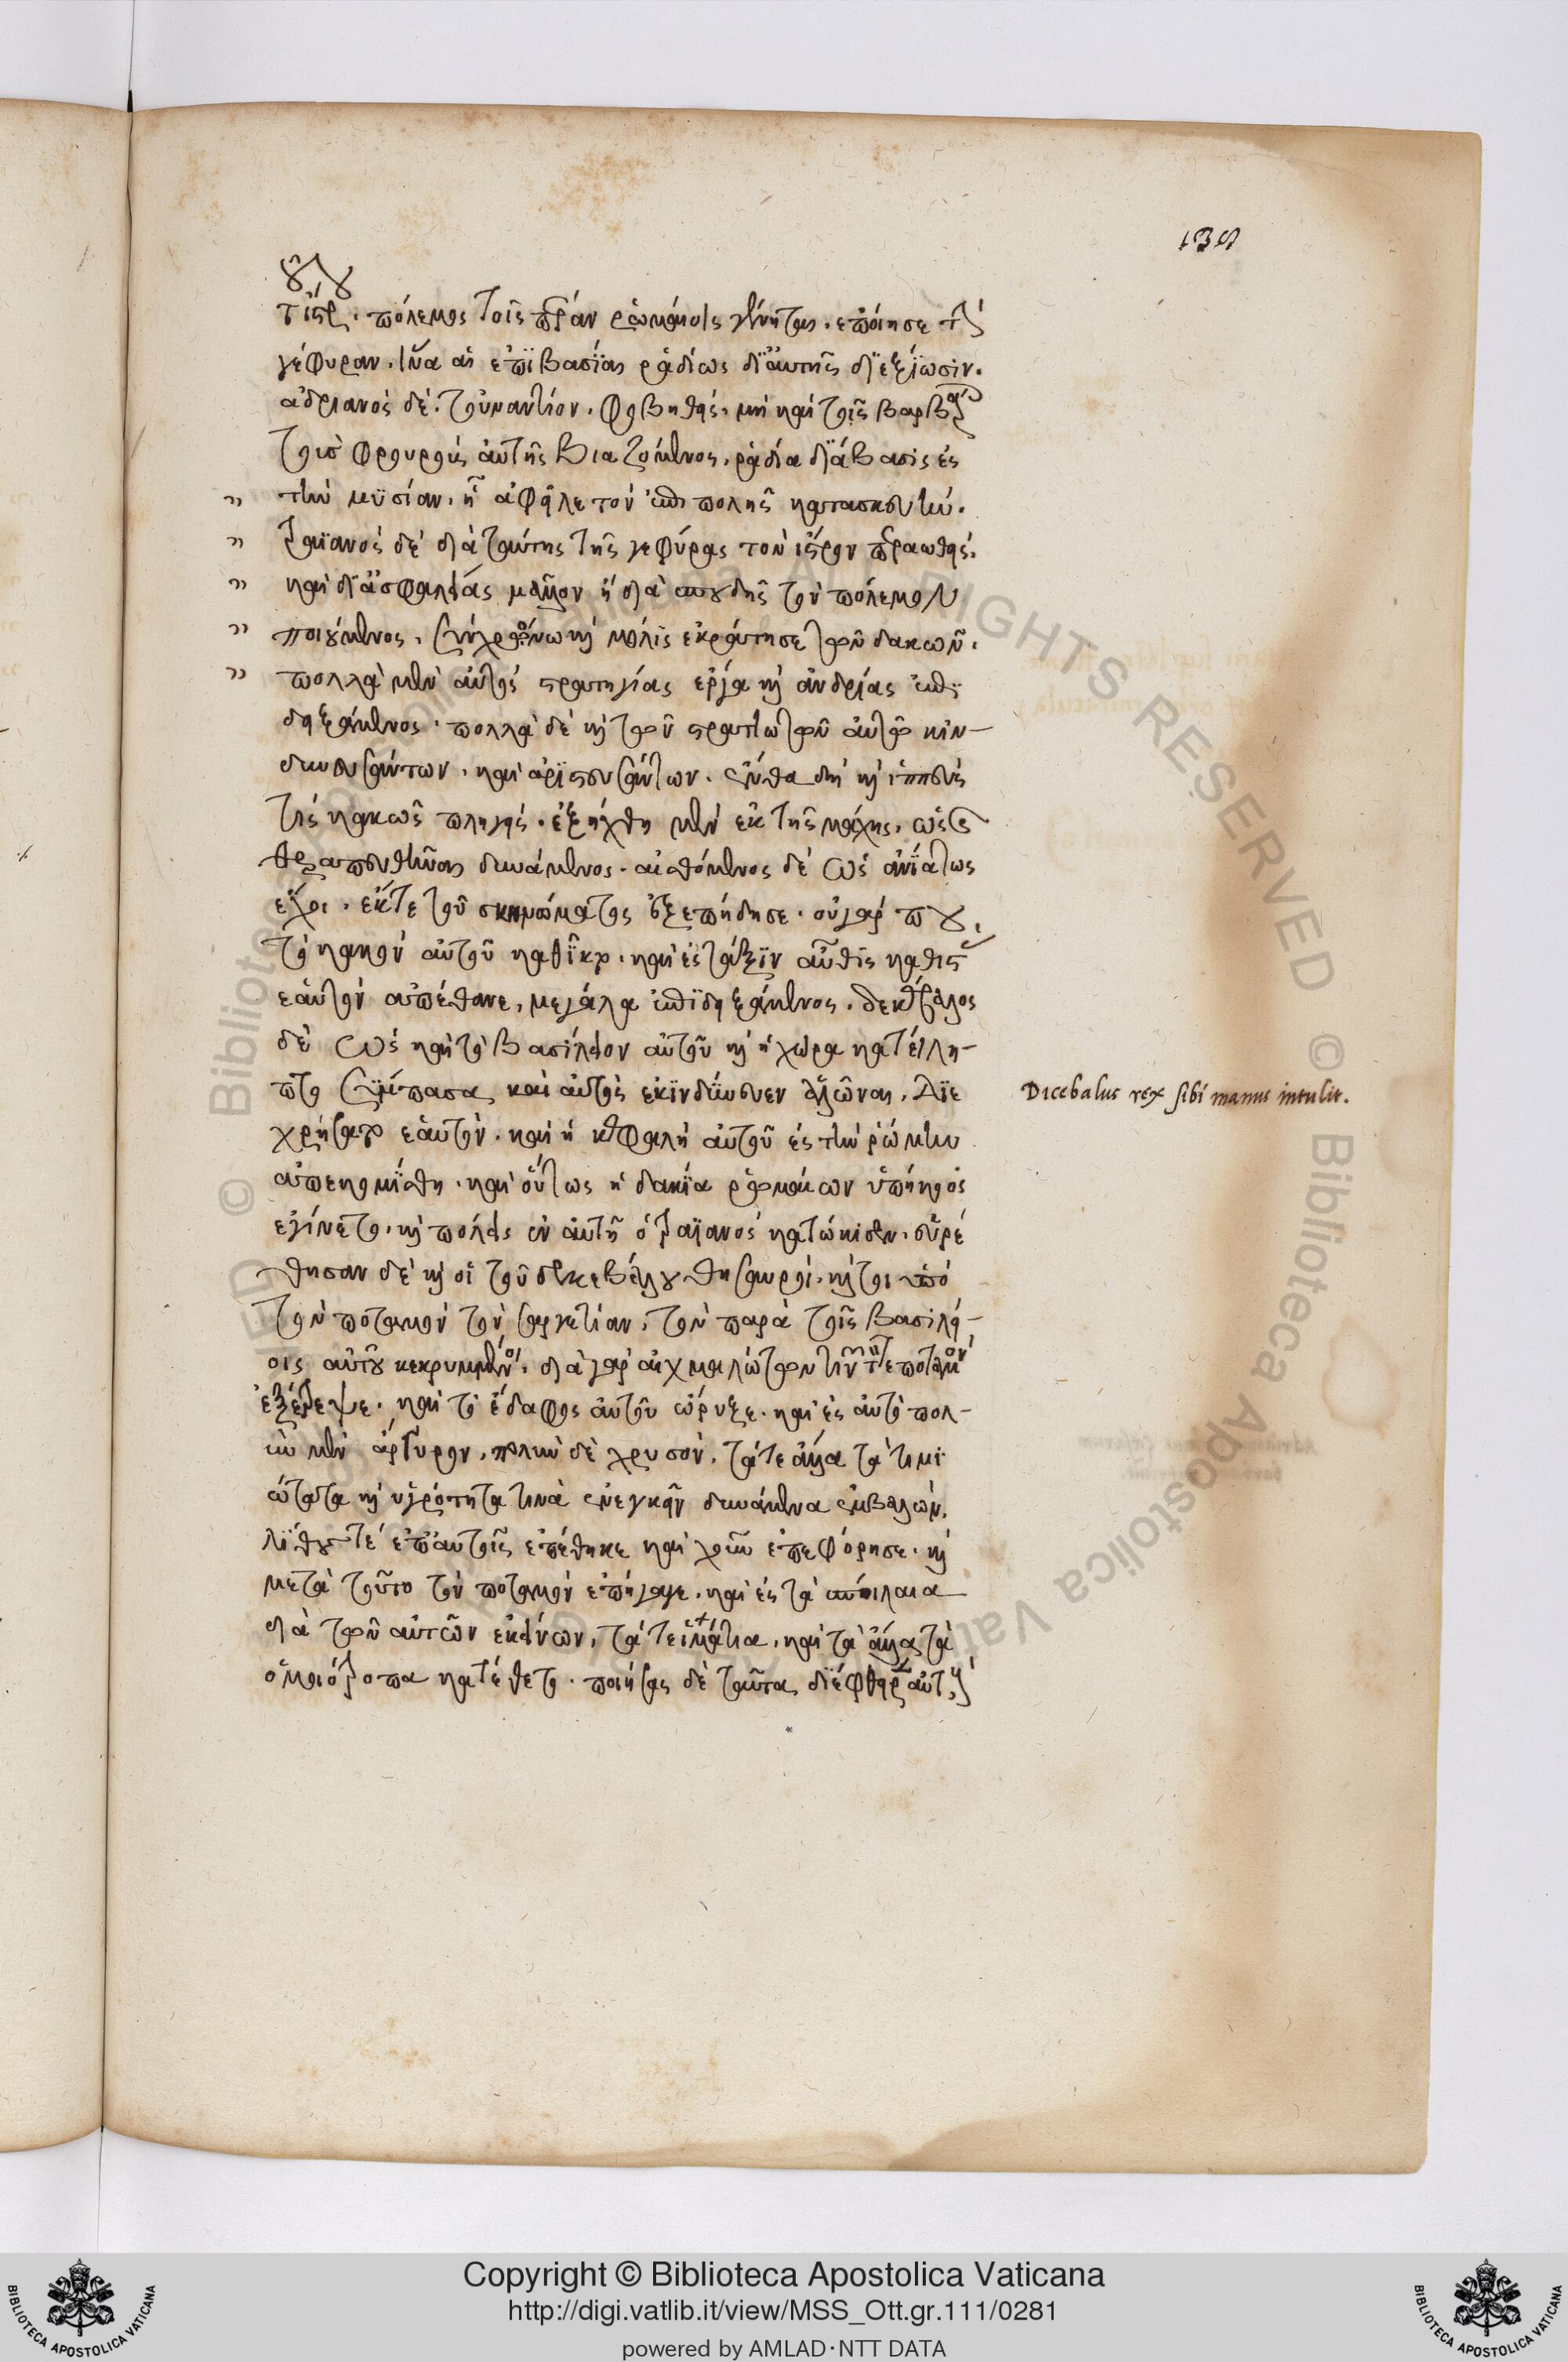 139
τὶς πόλεμος τοῖς πέραν ῥωμαίοις γένηται. ἐποίησε τὴν
γέφυραν. ἵνα αἱ ἐπϊβασίαι ῥᾳδίως δϊ αὐτῆς δϊεξϊωσιν.
ἀδριανὸς δὲ τοὐναντίον. φοβηθεὶς. μὴ καὶ τοῖς βαρβάροις
τοὺς φρουροὺς αὐτῆς βιαζομένοις. ῥαδία δϊάβασις ἐς
τὴν μϋσίαν. ἦ ἀφεῖλε τὸν ἐπιπολῆς κατασκευήν.
τραϊανὸς δὲ διὰ ταύτης τῆς γεφύρας τὸν ἴστρον περαιωθεὶς.
καὶ δϊ ἀσφαλείας μᾶλλον ἢ διὰ σπουδῆς τὸν πόλεμον
ποιούμενος. σὺν χρόνω καὶ μόλϊς ἐκράτησε τῶν δακῶν.
πολλὰ μὲν αὐτὸς στρατηγίας ἔργα καὶ ἀνδρίας ἐπϊ
δειξάμενος. πολλὰ δὲ καὶ τῶν στρατιωτῶν αὐτῶ κιν-
δυνευσάντων. καὶ ἀρϊστευσάντων. ἔνθα δὴ καὶ ἱππεύς
τὶς κακῶς πληγεὶς. ἐξήχθη μὲν ἐκ τῆς μάχης. ὥστε
θεραπευθῆναι δυνάμενος. αἰσθόμενος δὲ ὡς ἀνϊάτως
ἔχοι. ἔκτε τοῦ σκηνώματος ἐξεπήδησε. οὐ γὰρ που
τὸ κακὸν αὐτοῦ καθϊκτο. καὶ ἐς τάξϊν αὖθϊς καθιστ
ἑαυτὸν ἀπέθανε, μεγάλα ἐπϊδειξάμενος. δεκέβαλος
δὲ ὡς καὶ τὸ βασίλειον αὐτοῦ καὶ ἡ χώρα κατείλη-
πτο σύμπασα καὶ αὐτὸς ἐκϊνδύνευεν ἁλῶναι. Δϊε
χρήσατο ἑαυτὸν. καὶ ἡ κεφαλὴ αὐτοῦ ἐς τὴν ῥώμην
ἀπεκομίσθη. καὶ οὕτως ἡ δακϊα ῥωμαίων ὑπήκοος
ἐγίνετο. καὶ πόλεις ἐν αὐτῆ ὁ τραϊανὸς κατώκισεν. εὑρέ
θησαν δὲ καὶ οἱ τοῦ δεκεβάλου θησαυροί. καίτοι ὑπὸ
τὸν ποταμὸν τὸν σαργετίαν, τὸν παρὰ τοῖς βασιλεί-
οις αὐτοῦ κεκρυμμένοι. διὰ γὰρ αἰχμαλώτων τινῶν τόν τε ποταμὸν
ἐξέτρεψε. καὶ τὸ ἔδαφος αὐτοῦ ὤρυξε. καὶ ἐς αὐτὸ πολ-
ὺν μὲν ἄργυρον. πολὺν δὲ χρυσὸν. τά τε ἄλλα τὰ τιμϊ
ώτατα καὶ ὑγρότητα τινὰ ἐνεγκεῖν δυνάμενα ἐμβαλὼν.
λϊθους τὲ ἐπ' αὐτοῖς ἐπέθηκε καὶ χοῦν ἐπεφόρησε. καὶ
μετὰ τοῦτο τὸν ποταμὸν ἐπήγαγε. καὶ ἐς τὰ σπήλαια
διὰ τῶν αὐτῶν ἐκείνων, τά τε ἱμάτια. καὶ τὰ ἄλλα τὰ
ὁμοιότροπα κατέθετο. ποιήσας δὲ ταῦτα διέφθειρεν αὐτοὺς
Dicebalus rex sibi manus intulit.
Copyright © Biblioteca Apostolica Vaticana
http://digi.vatlib.it/view/MSS_Ott.gr.111/0281
powered by AMLAD·NTT DATA
BIBLIOTECA APOSTOLICA VATICANA
BIBLIOTECA APOSTOLICA VATICANA